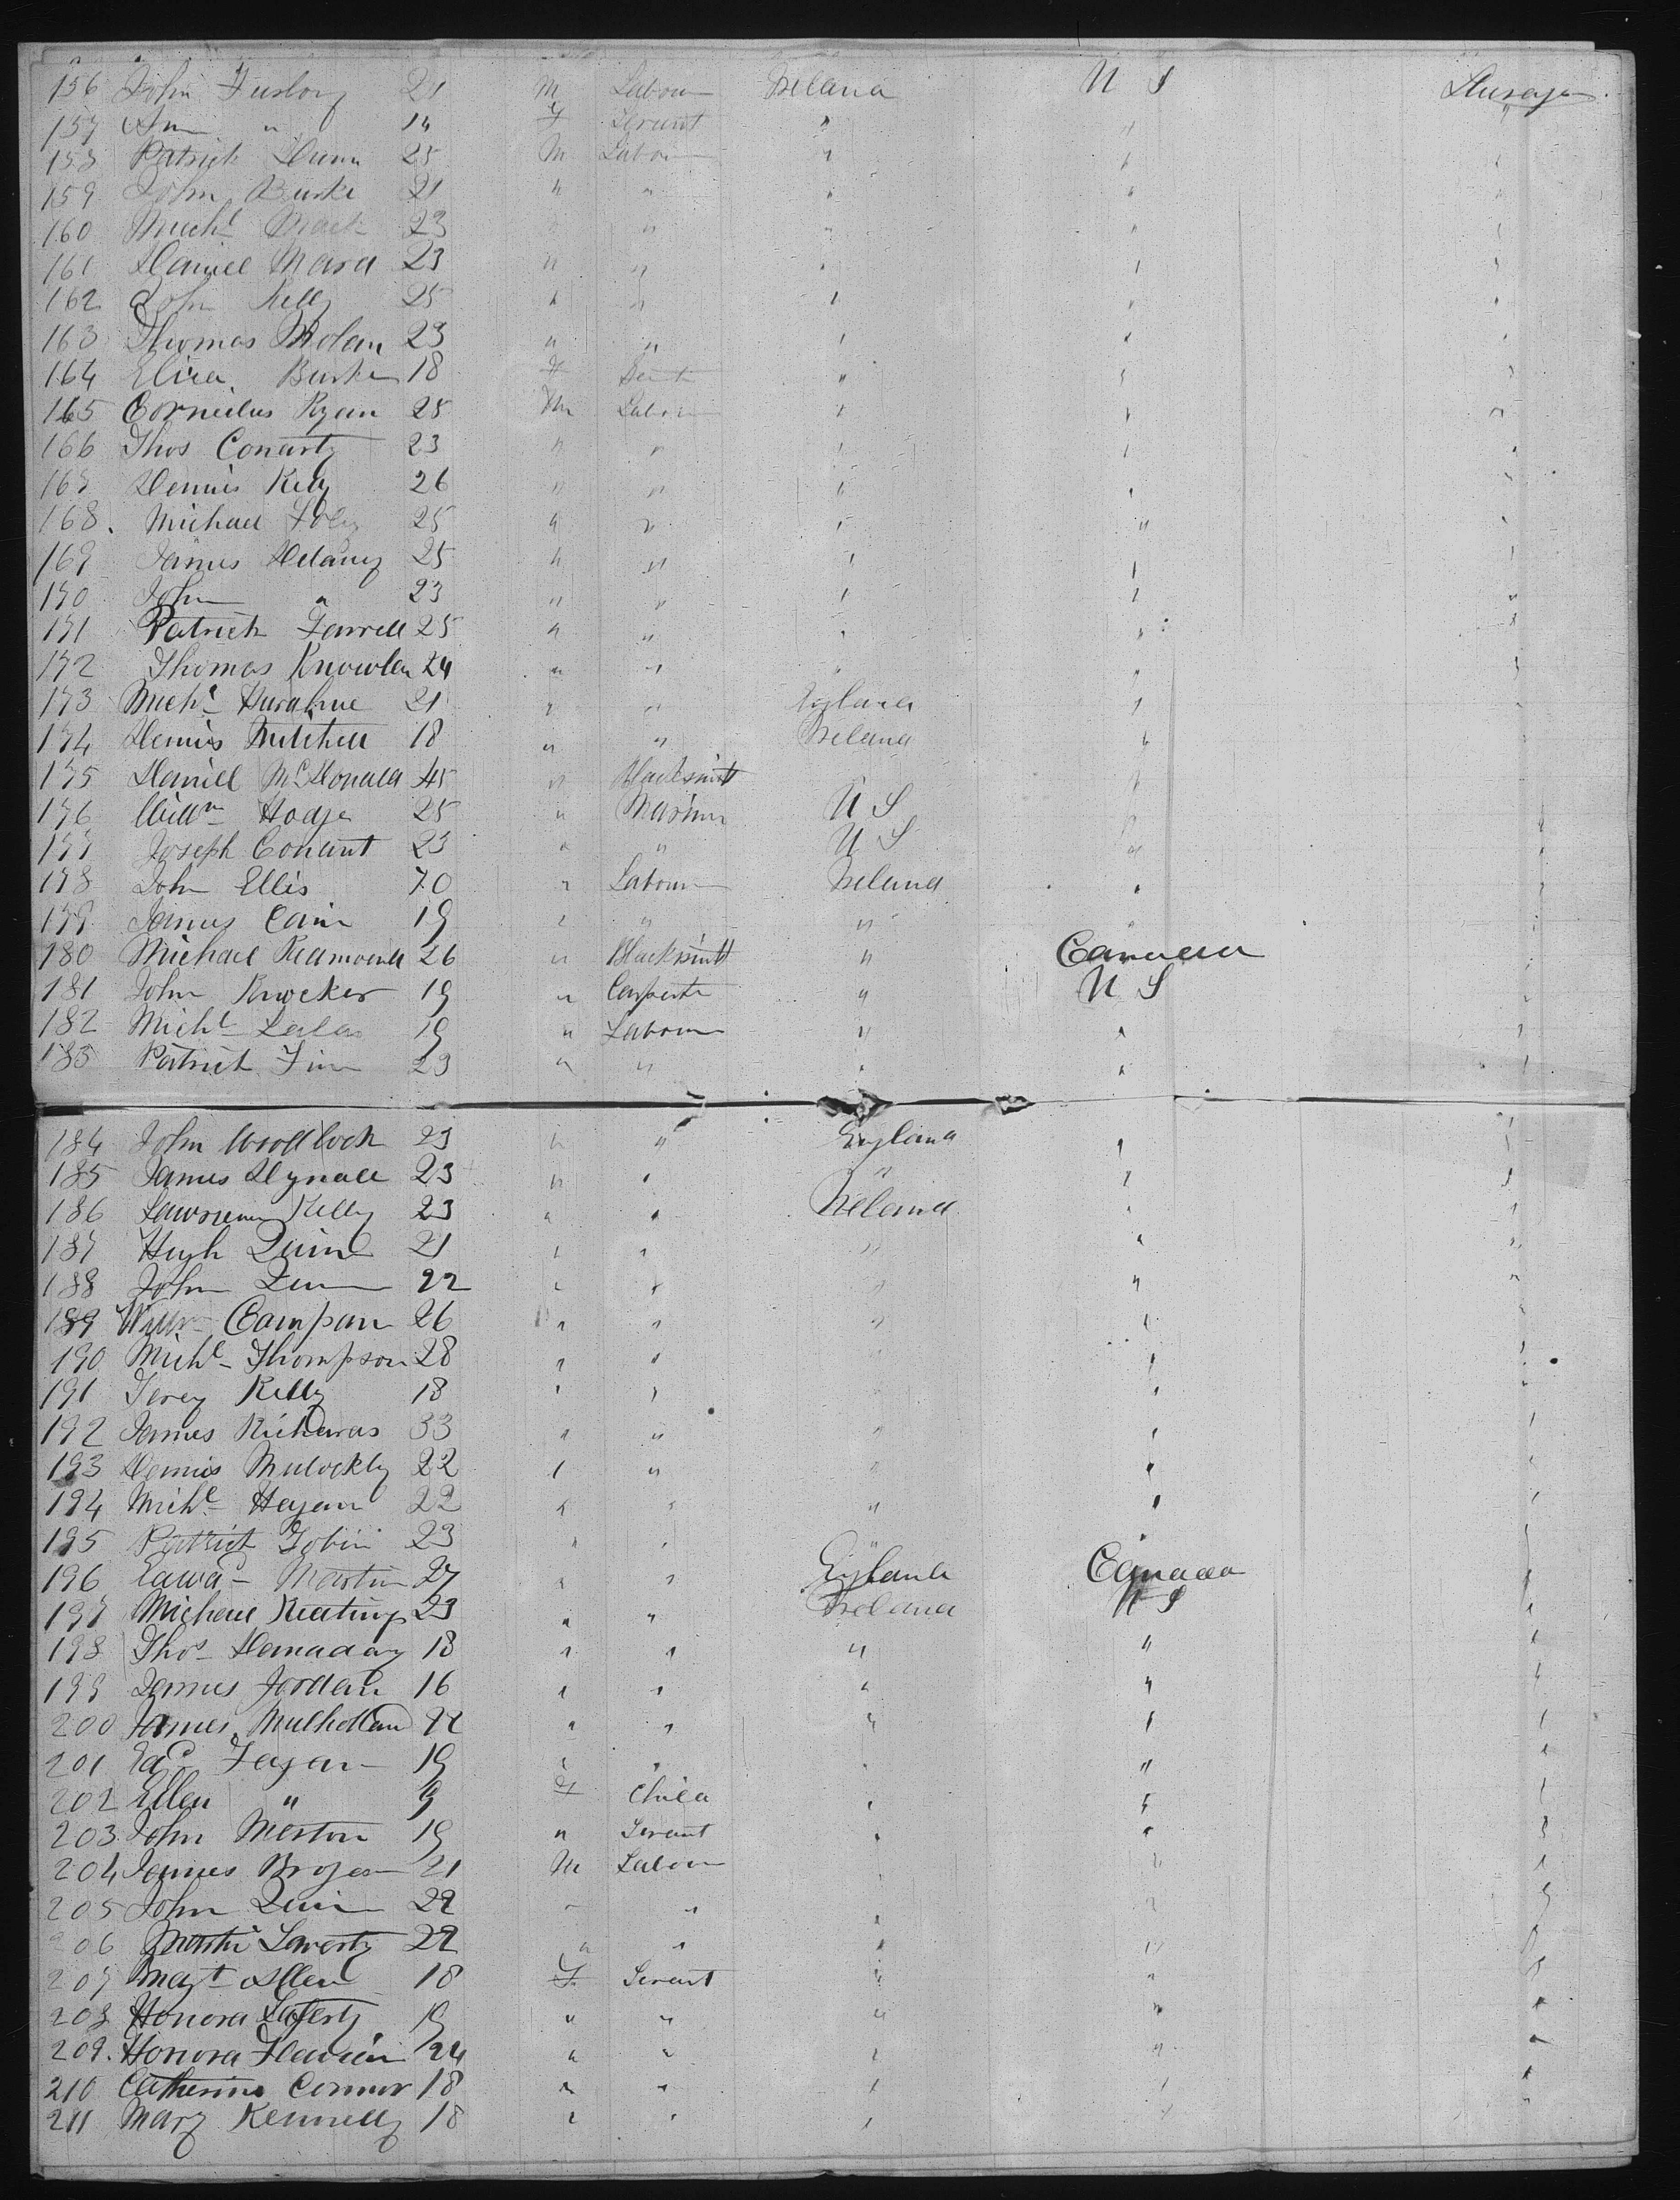 156 John Furlong 21 M Labour Ireland U S Steerage
157 Ann " 14 F Servant " " "
158 Patrick Dunn 25 M Labour " " "
159 John Burke 21 " " " " "
160 Michl Mack 23 " " " " "
161 Daniel Mara 23 " " " " "
162 John Kelly 25 " " " " "
163 Thomas Nolan 23 " " " " "
164 Eliza Burke 18 F " " "
165 Cornelius Ryan 25 M Labour " " "
166 Thos Conarty 23 " " " " "
167 Dennis Kelly 26 " " " " "
168. Michael Foley 25 " " " " "
169 James Delany 25 " " " " "
170 John " 23 " " " " "
171 Patrick Farrell 25 " " " " "
172 Thomas Knowlan 24 " " " " "
173 Michl 21 " " England " "
174 Dennis Mitchell 18 " " Ireland " "
175 Daniel McDonald 45 " Blacksmith "
176 Willm Hodge 25 " Mariner U S " "
177 Joseph Conant 23 " " U S " "
178 John Ellis 70 " Labour Ireland " "
179 James Cain 19 " " " " "
180 Michael Redmond 26 " Blacksmith " Canada "
181 John Knocker 19 " Carpenter " U S "
182 Michl Lalor 19 " Labour " " "
183 Patrick Finn 23 " " " " "
184 John Woodlock 23 " " England " "
185 James 23 " " " " "
186 Lawrence Kelly 23 " " Ireland " "
187 Hugh Quinn 21 " " " " "
188 John 22 " " " " "
189 Willm Campion 26 " " " " "
190 Michl Thompson 28 " " " " "
191 Kelly 18 " " " " "
192 James Richards 33 " " " " "
193 Dennis 22 " " " " "
194 Michl Hagan 22 " " " " "
195 Patrick Tobin 23 " " " " "
196 Edwd Martin 27 " " England Canada "
197 Michael Keating 23 " " Ireland U S "
198 Thos 18 " " " " "
199 James Jordan 16 " " " " "
200 James Mulholland 22 " " " " "
201 Ed Fagan 19 " " " " "
202 Ellen " 9 F Child " " "
203 John Merton 19 " Servant " " "
204 James Brogan 21 M Labour " " "
205 John Quinn 22 " " " " "
206 22 " " " " "
207 Magt Allen 18 F Servant " " "
208 Honora Laferty 19 " " " " "
209. Honora 24 " " " " "
210 Catherine Connor 18 " " " " "
211 Mary Kennelly 18 " " " " "